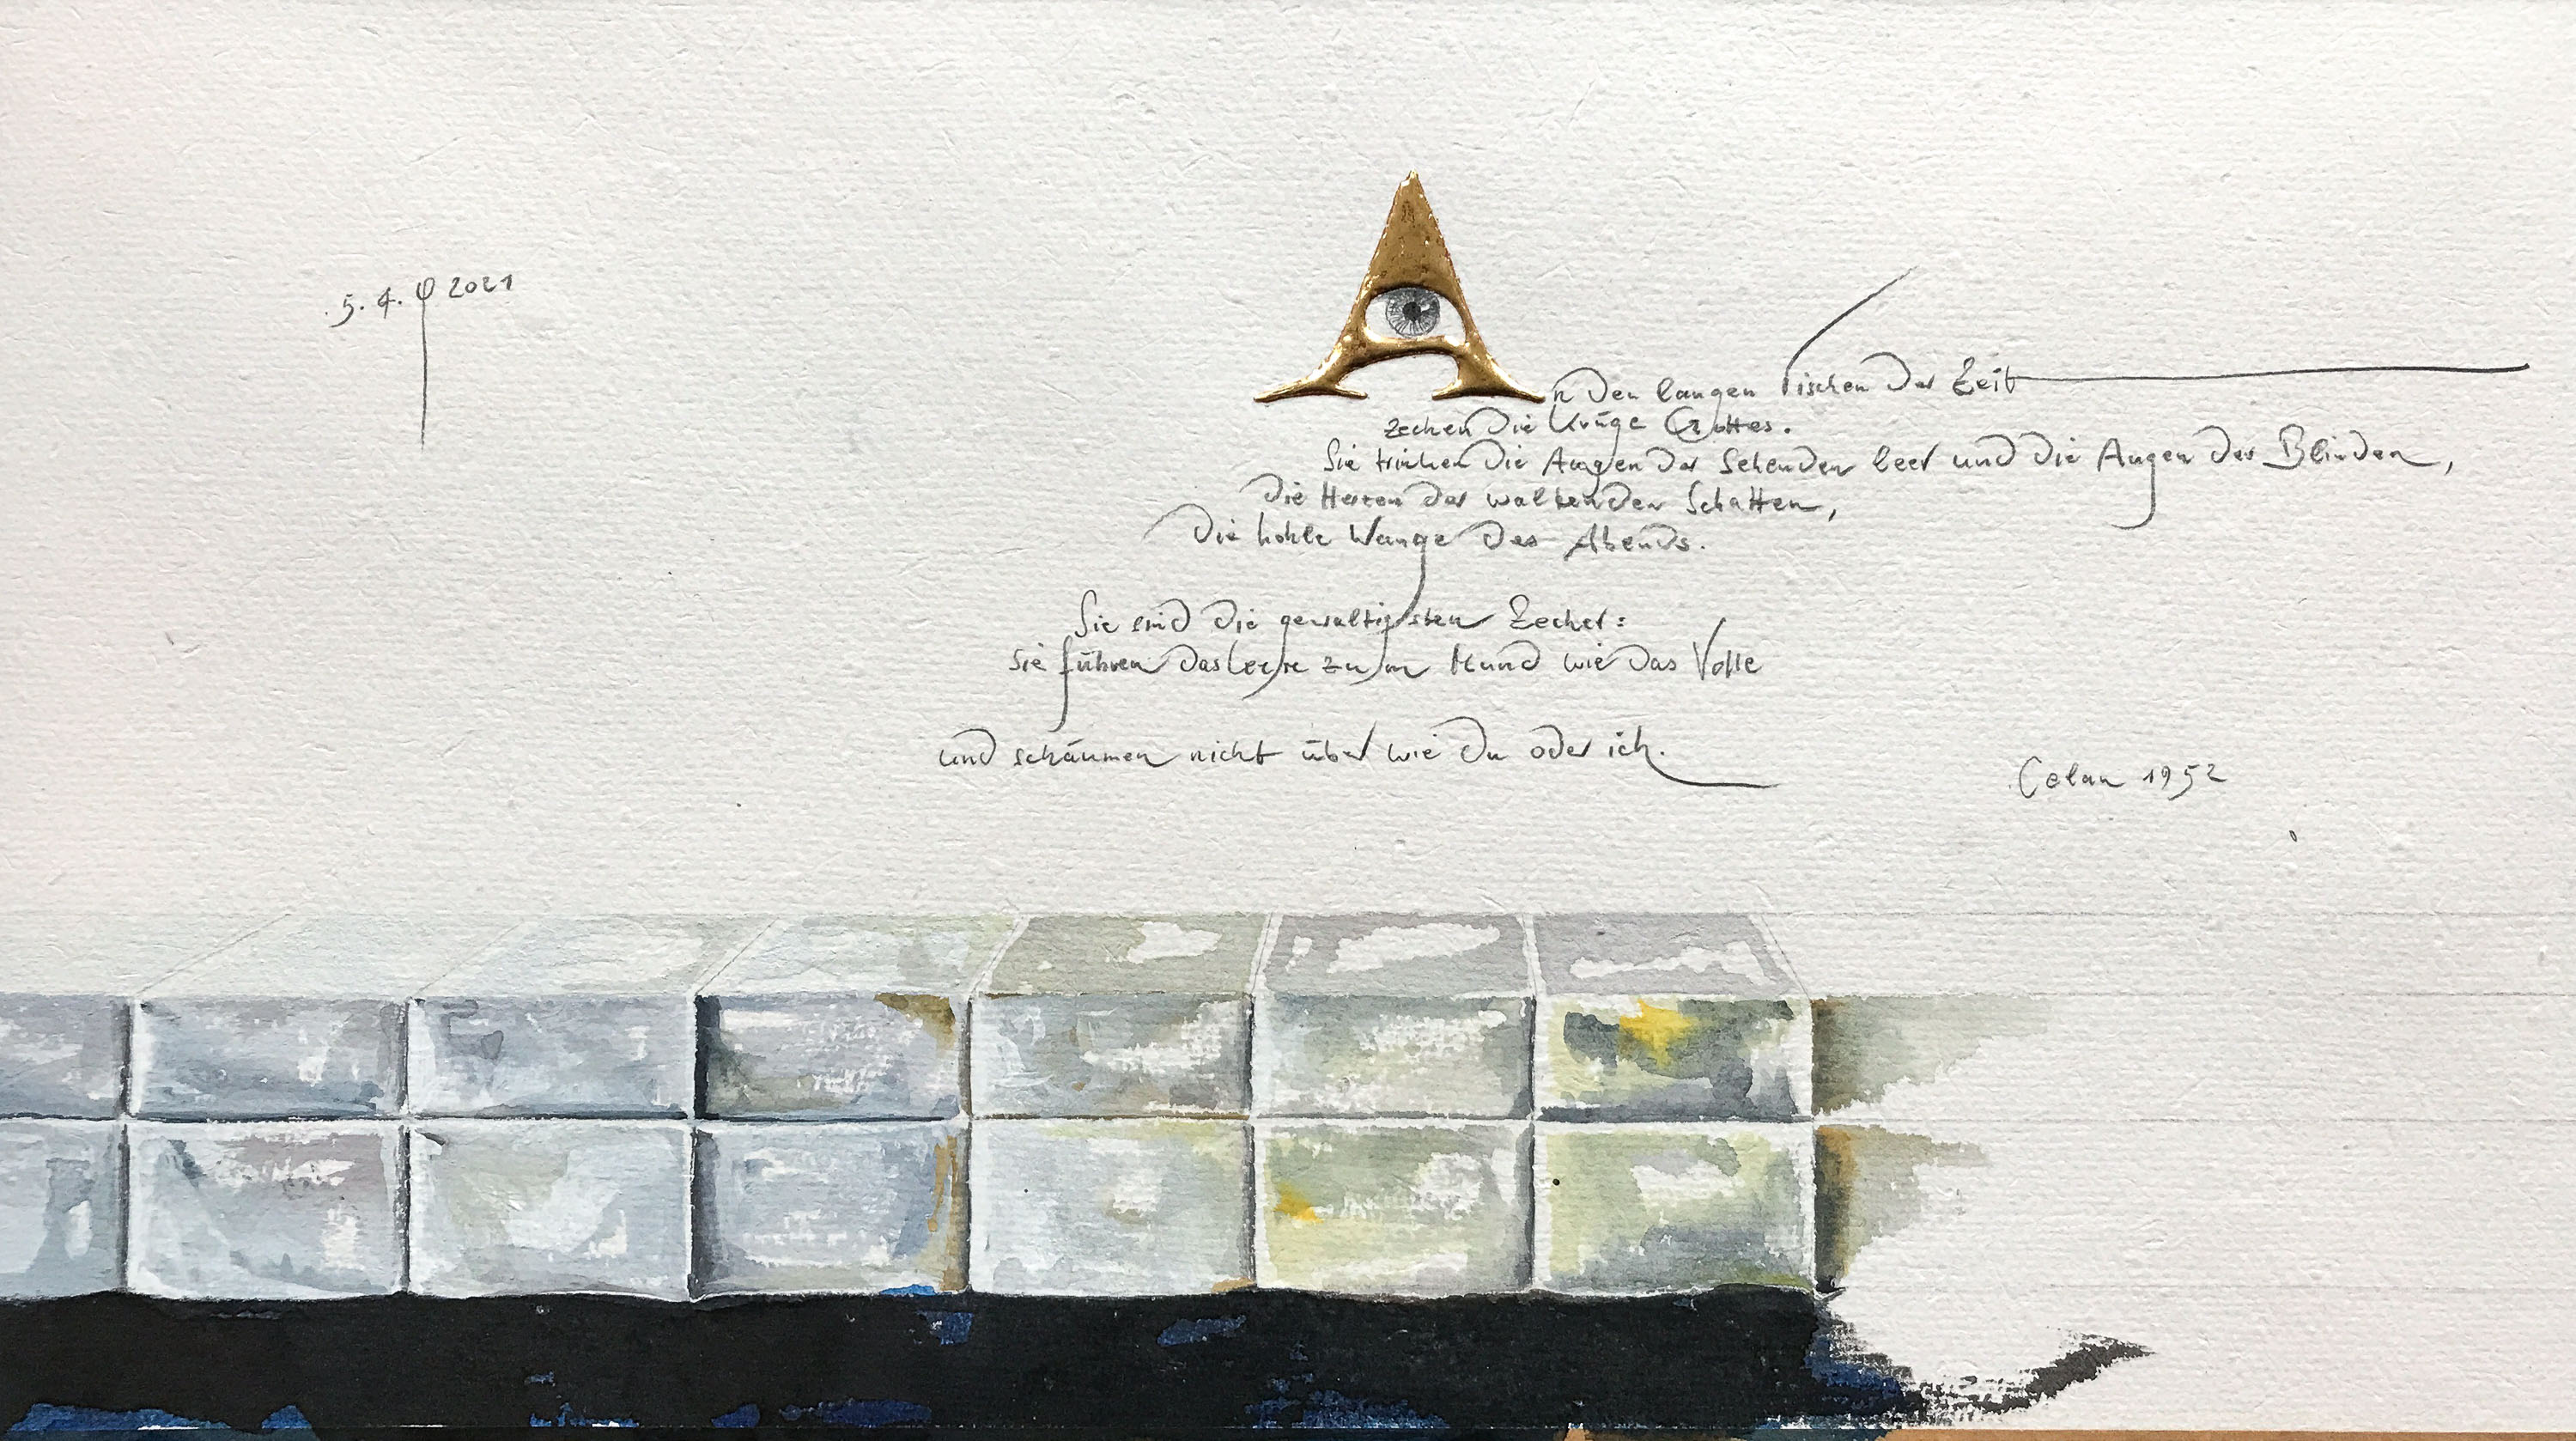 5. 4. φ 2021
An den langen Tischen der Zeit
zechen die Krüge Gottes.
Sie trinken die Augen der Sehenden leer und die Augen der Blinden,
die Herzen der waltenden Schatten,
die hohle Wange des Abends.
Sie sind die gewaltigsten Zecher:
sie führen das Leere zum Mund wie das Volle
und schäumen nicht über wie du oder ich.
Celan 1952